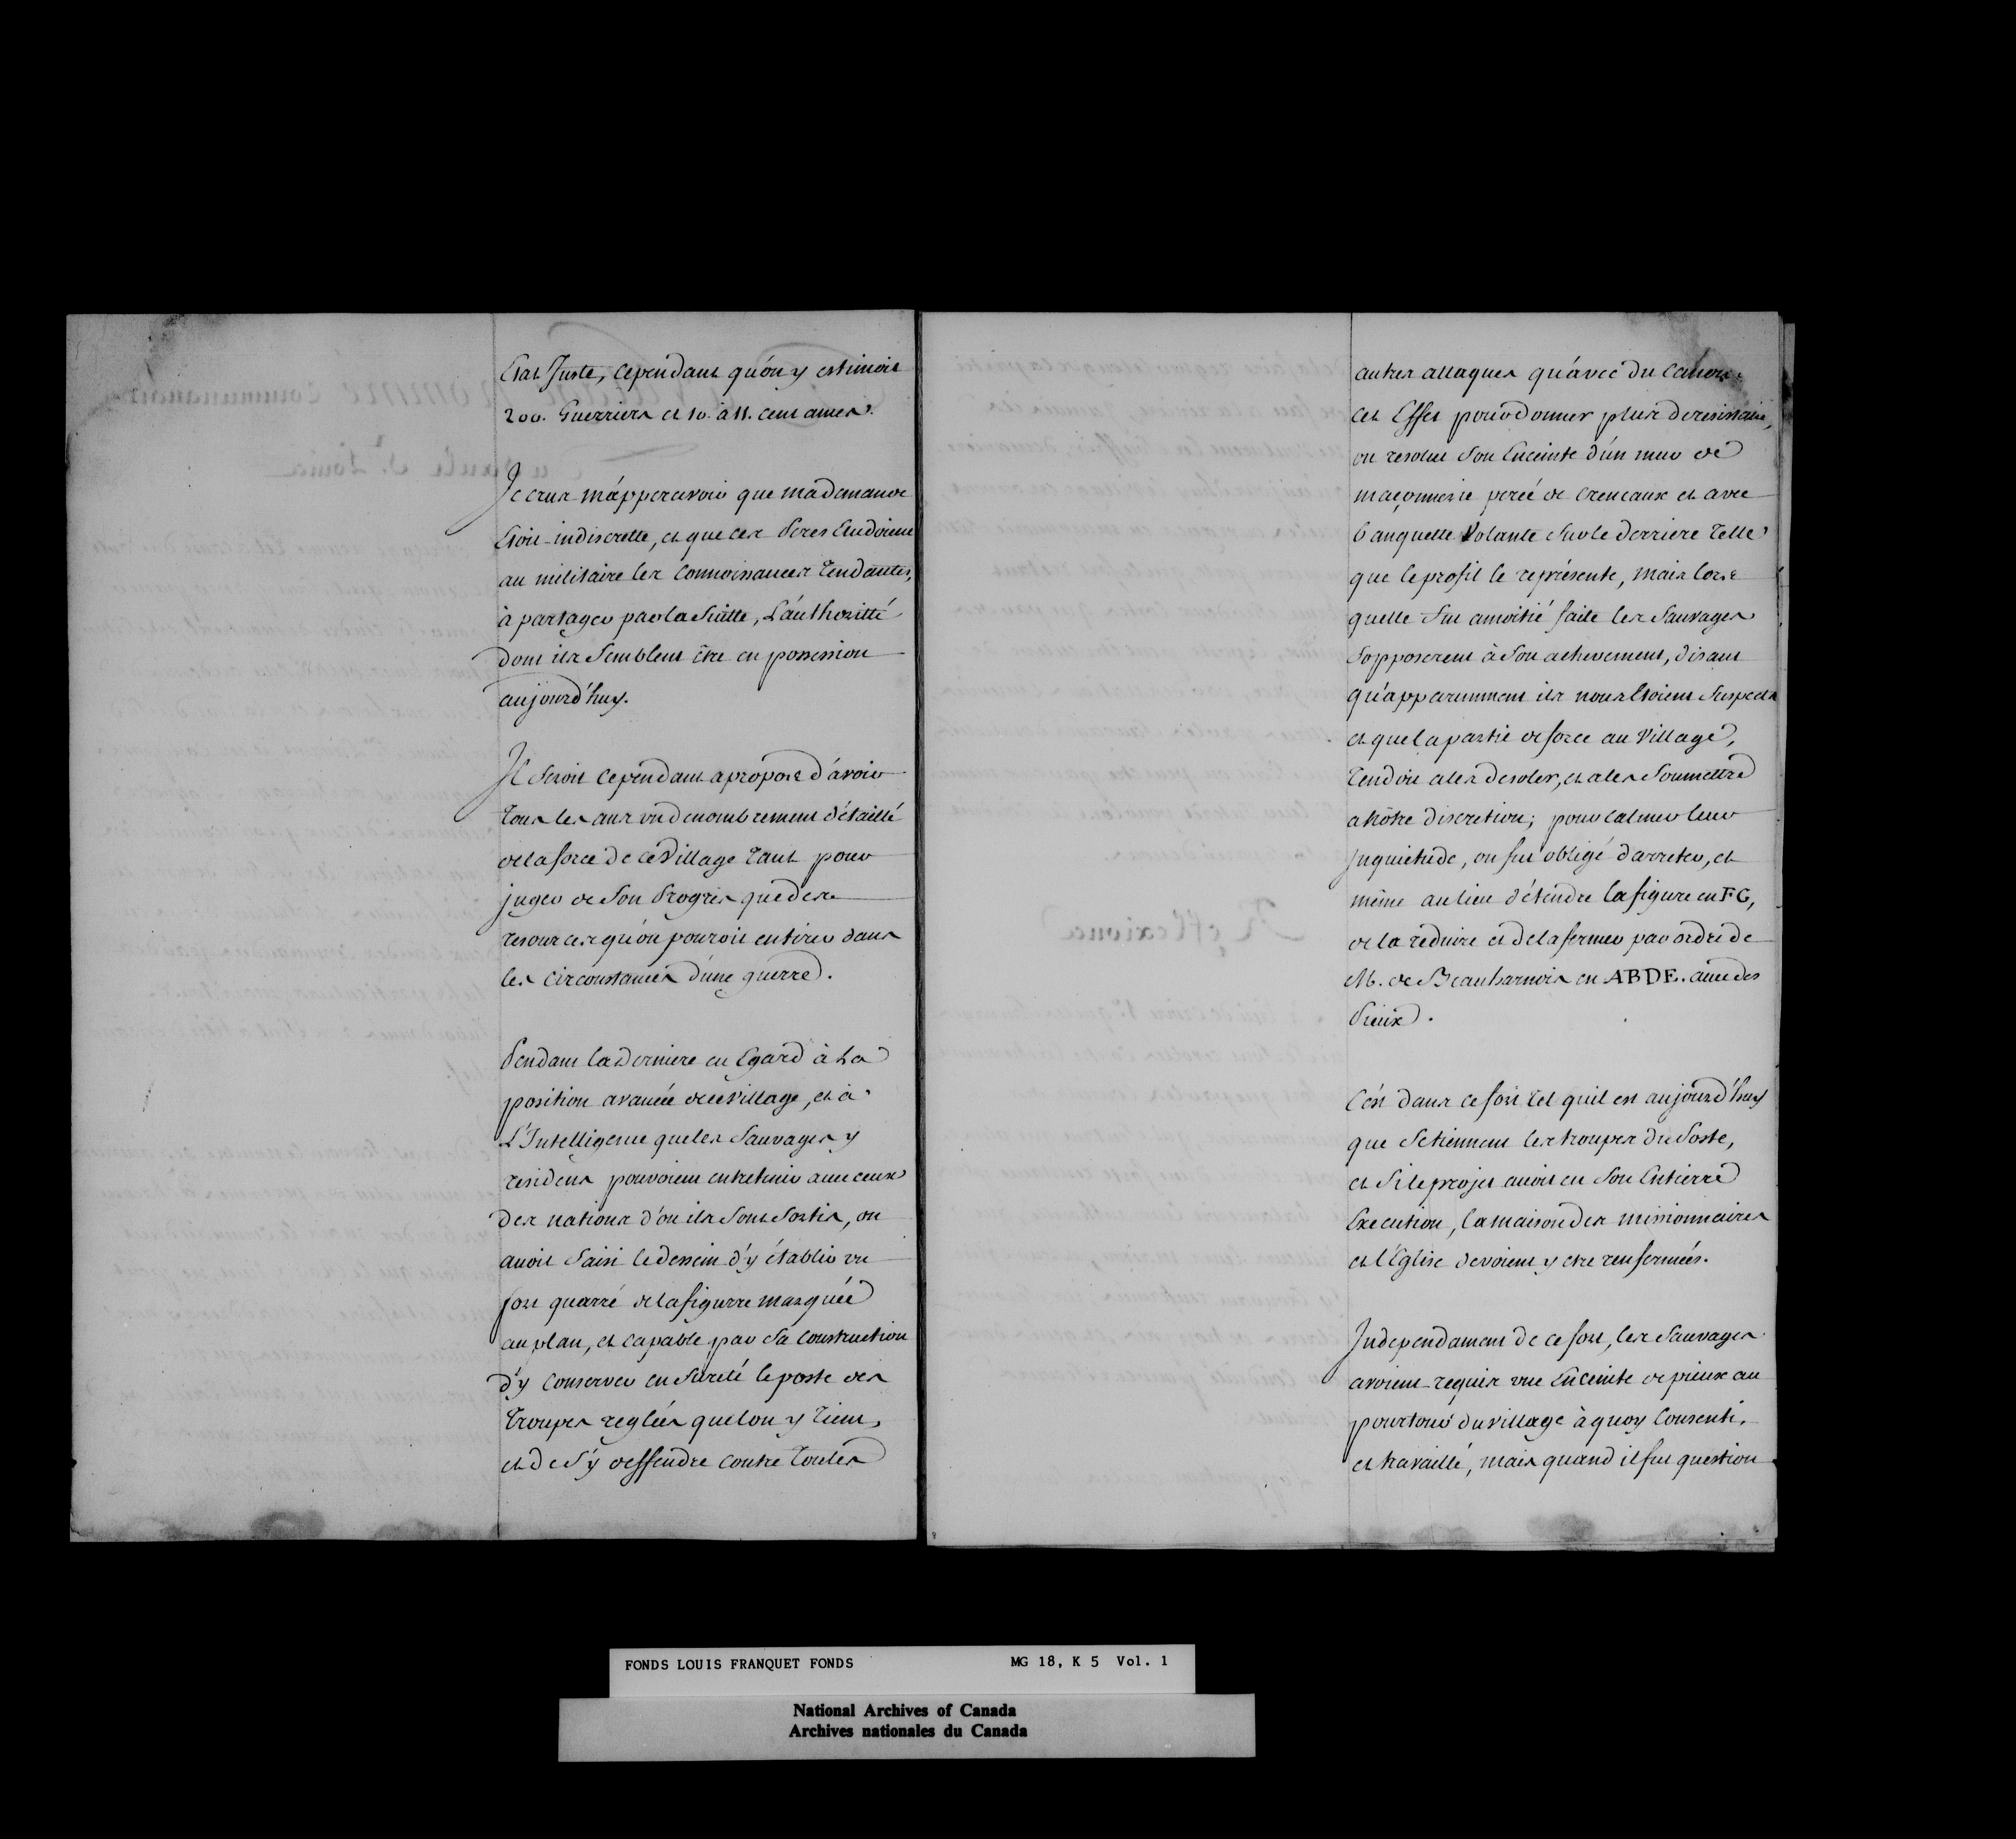 Etat Juste, Cependant qu'on y estimoit
200. Guerriers et 10. à 11. cent ames.
Je crus m'apperçevoir que ma demande
Etoit indiscrette, et que ces Peres Eludoient
au militaire les Connoissances Tendantes,
à partager par la Suitte, L'authoritté
dont ils Semblent être en possession
aujourd'huy.
Il Seroit Cependant apropos d'avoir
Tous les ans un denombrement détaillé
de la force de ce Village Tant pour
juger de Son Progrès que des
resources qu'on pouroit en tirer dans
les Circonstances d'une guerre.
Pendant la derniere eu Egard à La
position avancée de ce Village, et à
L'Intelligence que les Sauvages y
residens pouvoient entretenir avec ceux
des nations d'ou ils Sont Sortis, on
avoit Saisi le dessein d'y établir un
fort quarré de la figurre marquée
au plan, et capable par Sa Construction
d'y Conserver en Sureté le poste des
Troupes reglées que l'on y Tient,
et de S'y deffendre contre Toutes
autres attaques qu'avec du Canon.
Cet Effet pour donner plus de resistance,
on resolut Son Enceinte d'un mur de
maçonnerie percé de creneaux et avec
banquette Volante Sur le derriere Telle
que le profil le représente, mais lors
quelle fut amoitié faite les Sauvages
Sopposerent à Son achevement, disant
qu'apparemment ils nous Etoient Suspects
et que la partie de force au Village,
Tendoit ales desoler, et ales Soumettre
a Nôtre discretion; pour Calmer leur
Inquietude, on fut obligé d'arreter, et
même au lieu d'étendre la figure en FG,
de la reduire et de la fermer par ordre de
M. de Beauharnois en ABDE. avec des
Pieux.
C'est dans ce fort Tel quil est aujourd'huy
que Se tiennent les troupes du Poste,
et Si le projet avoit eu Son Entierre
Execution, la maison des missionnaires
et l'Eglise devoient y etre renfermées.
Independament de ce fort, les Sauvages
avoient requis une Enceinte de pieux au
pourtour du village à quoy Consenti,
et travaillé, mais quand il fut question
FONDS LOUIS FRANQUET FONDS MG 18, K 5 Vol. 1
National Archives of Canada
Archives nationales du Canada